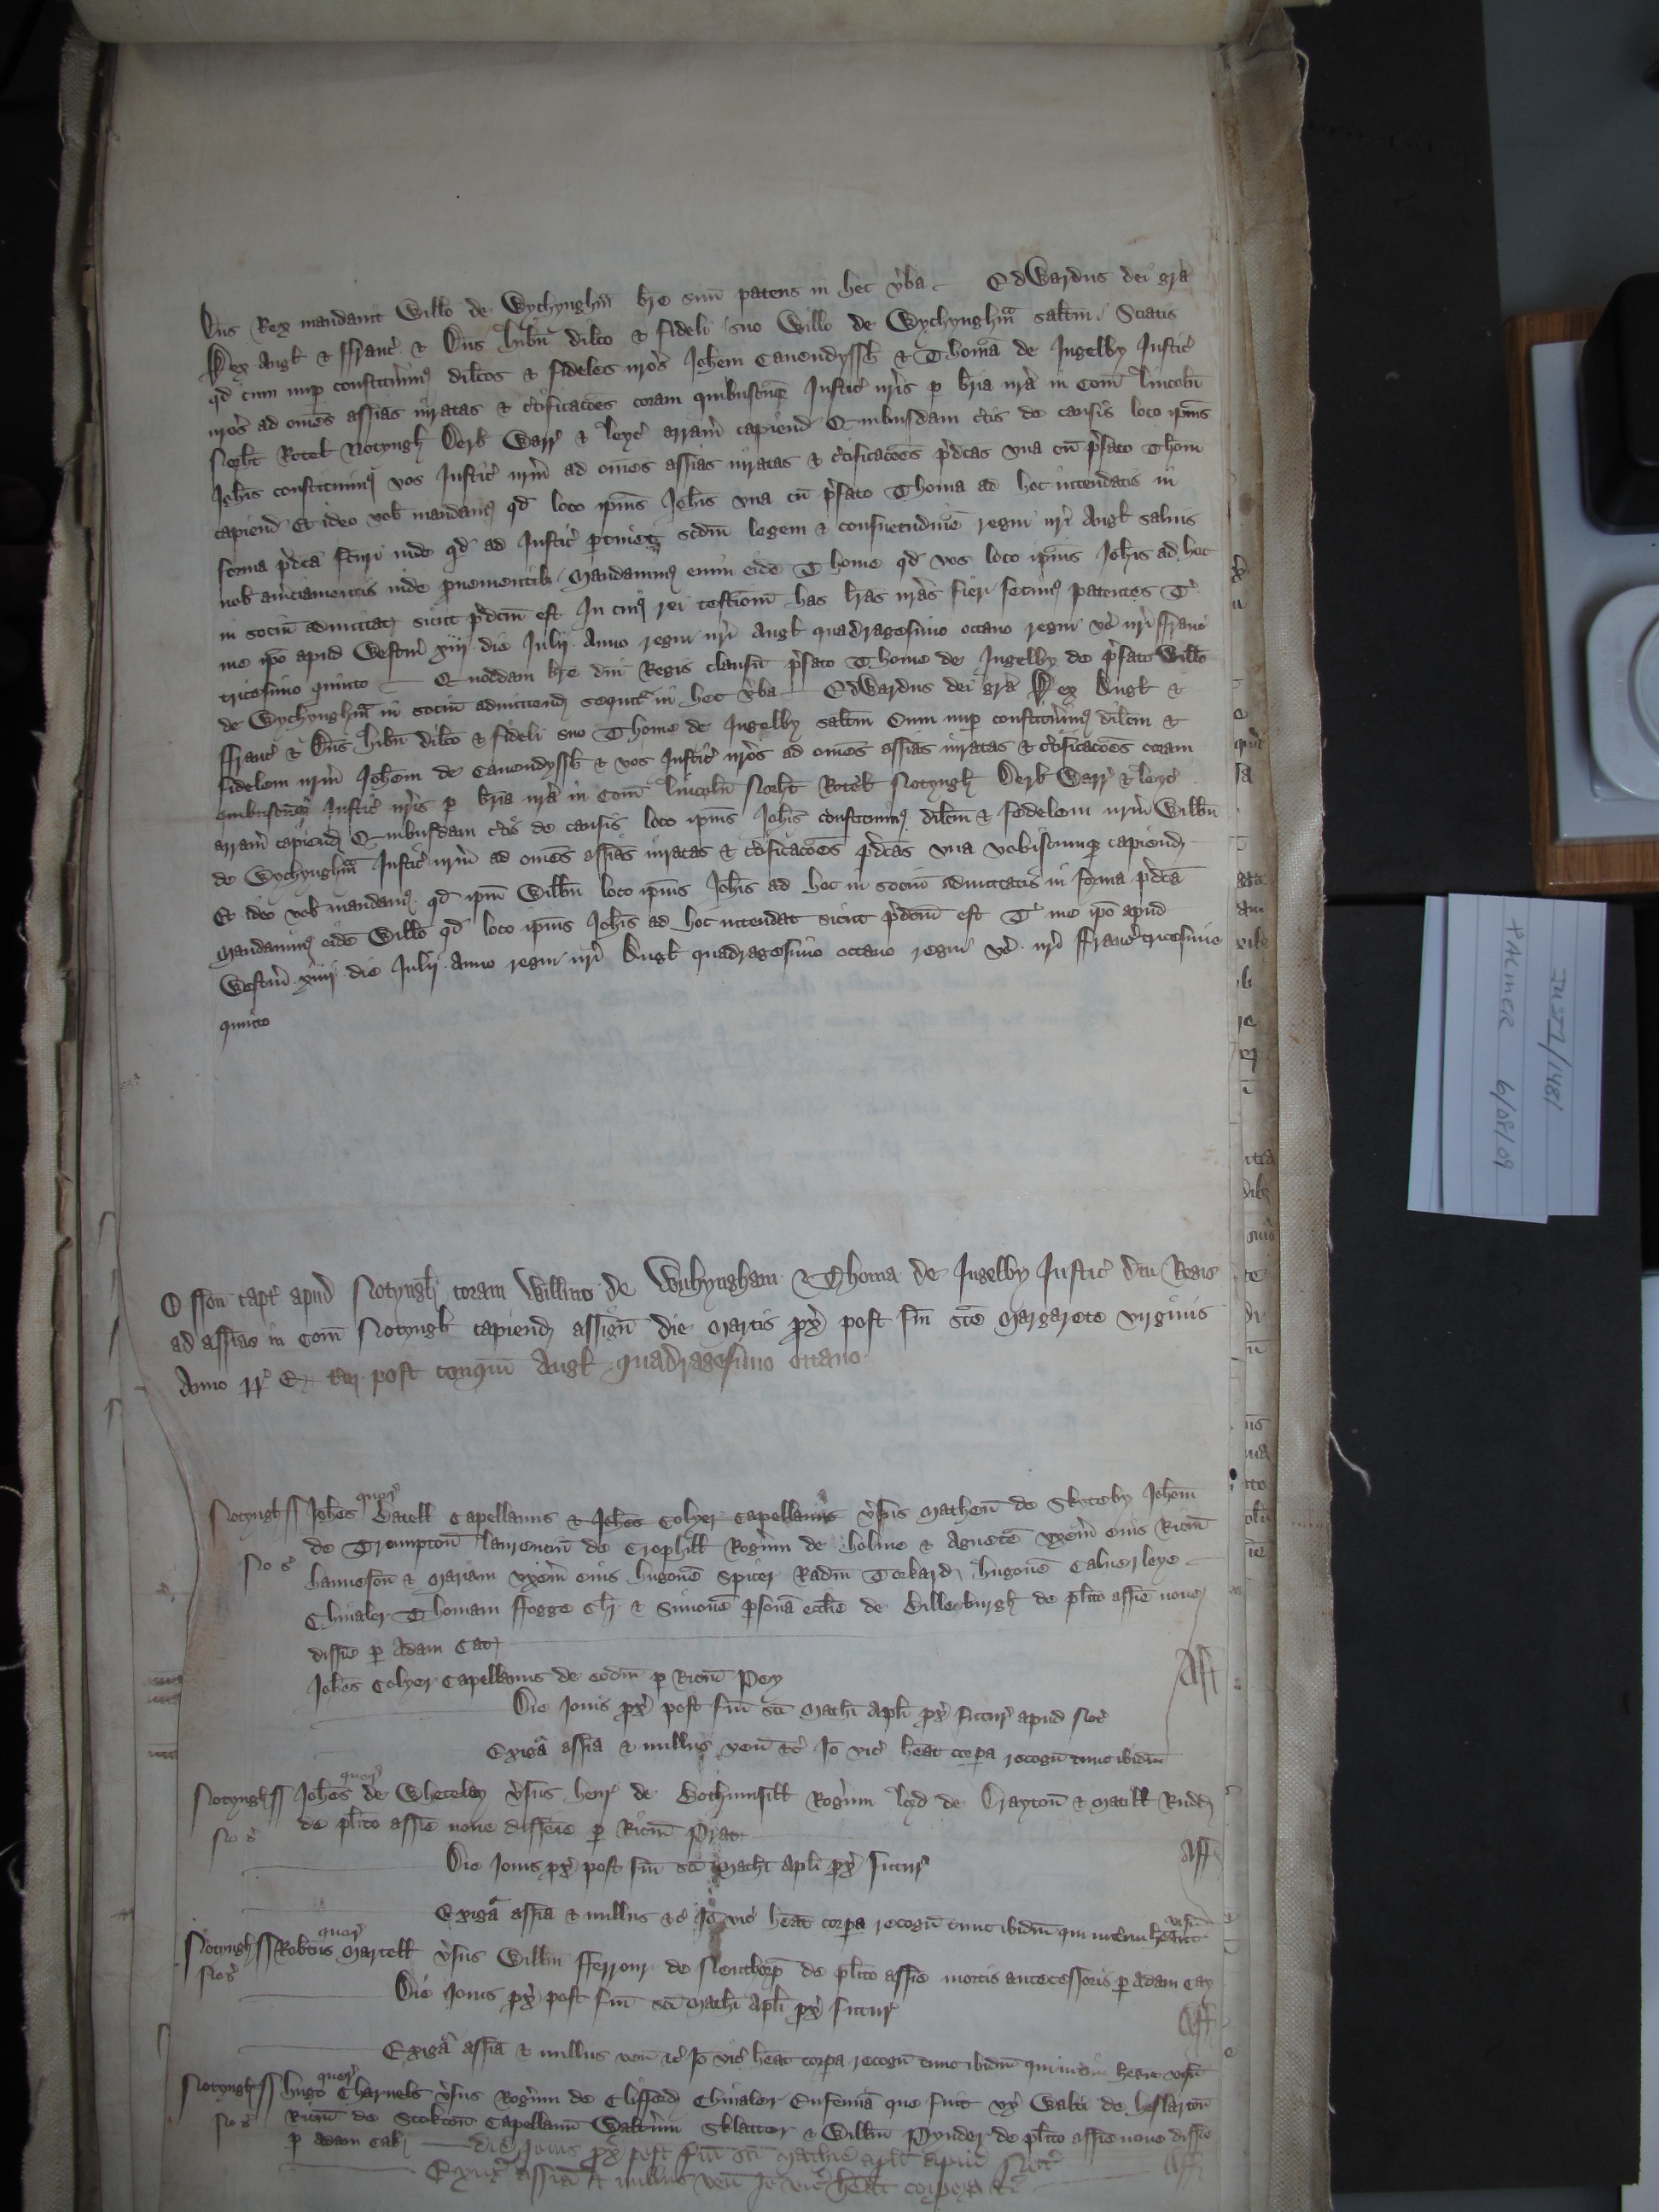 Dns Rex mandavit Willo de Wychyngham bre suu patens in hec vba Edwardus dei gra
Rex Angl & ffranc & Dns hibn dilco & fideli suo Willo de Wychyngham saltm Sciatis
qd cum nup constituimus dilcos & fideles nros Johem Cavendyssh & Thoma de Ingelby Justic
nros ad omes assias juratas & ctificacoes coram quibuscuq Justic nris p bria nra in Com Lincoln
Norht Rotel Notyngh Derb Warr & Leyc arram capiend Quibusdam ctis de causis loco ipius
Johis constituimus vos Justic nrm ad omes assias juratas & ctificacoes pdcas una cu pfato Thom
capiend Et ideo vob mandamus qd loco ipius Johis una cu pfato Thoma ad hec intendatis in
forma pdca fcuri inde qd ad Justic ptinet scdm legem & consuetudine regni nri Angl salvis
nob amciamentis inde pvenientib Mandavimus enim eide Thome qd vos loco ipius Johis ad hec
in sociu admittat sicut pdcm est In cuius rei testiom has lras nras fieri fecimus patentes T
me ipo apud Westm xiiij die Julij Anno regni nri Angl quadragesimo octavo regni vo nri ffranc
tricesimo quinto Quoddam bre dni Regis clausu pfato Thome de Ingelby de pfato Willo
de Wychyngham in sociu admittend sequit in hec vba Edwardus dei gra Rex Angl &
ffranc & Dns hibn dilco & fideli suo Thome de Ingelby saltm Cum nup constituimus dilcm &
fidelem nrm Johem de Cavendyssh & vos Justic nros ad omes assias juratas & ctificacoes coram
quibuscuq Justic nris p bria nra in Com Lincoln Norht Rotel Notyngh Derb Warr & Leyc
arram capiend Quibusdam ctis de causis loco ipius Johis constituimus dilcm & fidelem nrm Willm
de Wychyngham Justic nrm ad omes assias juratas & ctificacoes pdcas una vobiscumq capiend
Et ideo vob mandamus qd ipm Willm loco ipius Johis ad hec in sociu admittatis in forma pdca
Mandavimus eide Willo qd loco ipius Johis ad hec intendat sicut pdcm est T me ipo apud
Westm xiiij die Julij Anno regni nri Angl quadragesimo octavo regni vo nri ffranc tricesimo
quinto
Esson capt apud Notyngh coram Willmo de Wichyngham & Thoma de Ingelby Justic dni Regis
ad assias in Com Notyngh capiend assign die Martis px post fm sce Margarete virginis
Anno rr E tcij post conqm Angl quadragesimo octavo
Notyngh ss Johes quer Batell Capellanus & Johes Colyer Capellanus vsus Matheu de Skyteby Johem
de Trompton Laurenciu de Crophill Rogm de holme & Agnete uxem eius Ricm
No s hanneson & Mariam uxem eius hugone Spicer Radm Torkard hugone Calverleye
Chivaler Thomam ffogge Chr & Simone psona ecclie de Billeburgh de plito assie nove
dissie p Adam Cat
Johes Colyer Capellanus de eodm p Ricm Pey
Die Jovis px post fm sci Mathi Apli px futur apud Not Aff
Exiga assia & nullus ven &c Io vic heat corpa recogn tunc ibidm
Notyngh ss Johes quer de Wheteley vsus henr de Bothumsill Rogm led de Drayton & Matill Rudd
No s de plito assie nove disseie p Ricm Prat
Die Jovis px post fm sci Mathi Apli px futur Aff
Exiga assia & nullus &c Io vic heat corpa recogn tunc ibidm qui interim heant visu
Notyngh ss Robtus quer Martell vsus Willm fferrour de Neuthorp de plito assie mortis antecessoris p Adam Cay
No s Die Jovis px post fm sci Mathi Apli px futur Aff
Exiga assia & nullus ven &c Io vic heat corpa recogn tunc ibidm qui interim heant visu
Notyngh ss hugo quer Charnels vsus Rogm de Clifford Chivaler Eufemia que fuit ux Walti de heslarton
No s Ricm de Stokton Capellanu Waltrum Sklatter & Willm Pynder de plito assie nove dissie
p Adam Cat die Jovis px post fm sci Mathie apli apud Nott Aff
Exiga assia & nullus ven Io vic heat corpora &c
JUST1/1481
PALMER 6/08/09